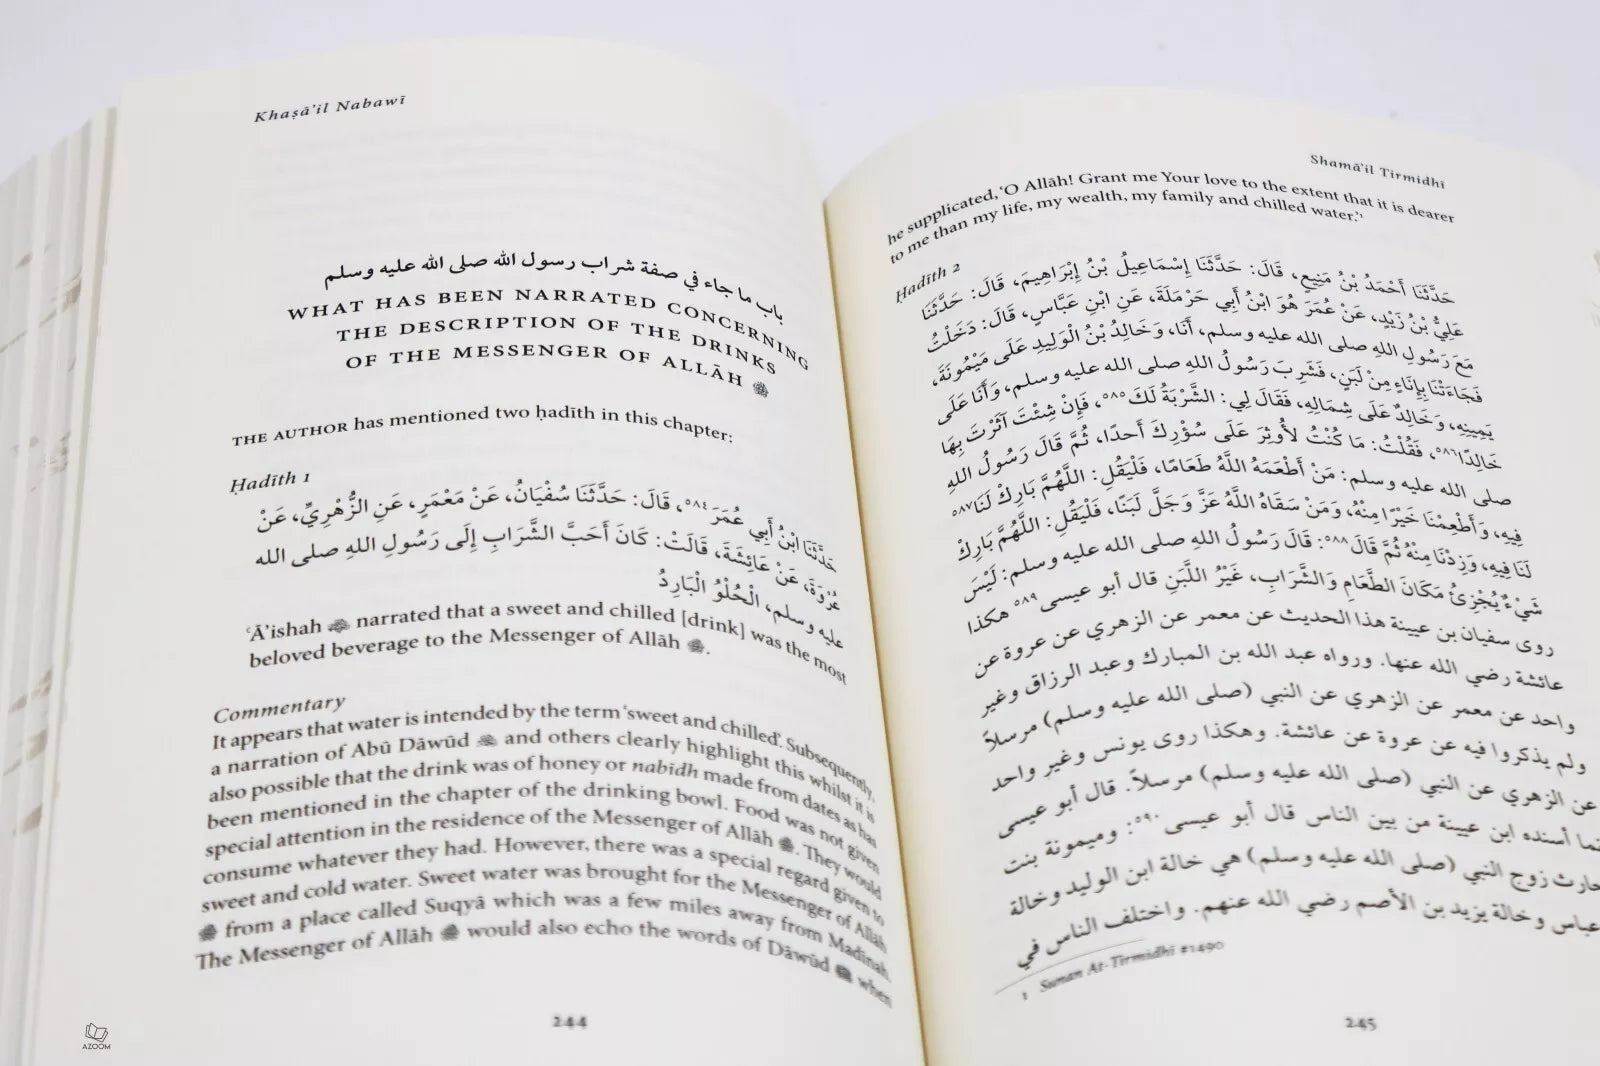 Khaṣā'il Nabawī
باب ما جاء في صفة شراب رسول الله صلى الله عليه وسلم
WHAT HAS BEEN NARRATED CONCERNING
THE DESCRIPTION OF THE DRINKS
OF THE MESSENGER OF ALLĀH ﷺ
THE AUTHOR has mentioned two ḥadīth in this chapter:
Ḥadīth 1
حَدَّثَنَا ابْنُ أَبِي عُمَرَ٥٨٤، قَالَ: حَدَّثَنَا سُفْيَانُ، عَنْ مَعْمَرٍ، عَنِ الزُّهْرِيِّ، عَنْ
عُرْوَةَ، عَنْ عَائِشَةَ، قَالَتْ: كَانَ أَحَبَّ الشَّرَابِ إِلَى رَسُولِ اللهِ صلى الله
عليه وسلم، الْحُلْوُ الْبَارِدُ
ʿĀ'ishah narrated that a sweet and chilled [drink] was the most
beloved beverage to the Messenger of Allāh ﷺ.
Commentary
It appears that water is intended by the term 'sweet and chilled'. Subsequently,
a narration of Abū Dāwūd and others clearly highlight this whilst it is
also possible that the drink was of honey or nabīdh made from dates as has
been mentioned in the chapter of the drinking bowl. Food was not given
special attention in the residence of the Messenger of Allāh ﷺ. They would
consume whatever they had. However, there was a special regard given to
sweet and cold water. Sweet water was brought for the Messenger of Allāh
ﷺ from a place called Suqyā which was a few miles away from Madīnah.
The Messenger of Allāh ﷺ would also echo the words of Dāwūd when
244
AZOOM
Shamā'il Tirmidhī
he supplicated, 'O Allāh! Grant me Your love to the extent that it is dearer
to me than my life, my wealth, my family and chilled water.'¹
Ḥadīth 2
حَدَّثَنَا أَحْمَدُ بْنُ مَنِيعٍ، قَالَ: حَدَّثَنَا إِسْمَاعِيلُ بْنُ إِبْرَاهِيمَ، قَالَ: حَدَّثَنَا
عَلِيُّ بْنُ زَيْدٍ، عَنْ عُمَرَ هُوَ ابْنُ أَبِي حَرْمَلَةَ، عَنِ ابْنِ عَبَّاسٍ، قَالَ: دَخَلْتُ
مَعَ رَسُولِ اللهِ صلى الله عليه وسلم، أَنَا، وَخَالِدُ بْنُ الْوَلِيدِ عَلَى مَيْمُونَةَ،
فَجَاءَتْنَا بِإِنَاءٍ مِنْ لَبَنٍ، فَشَرِبَ رَسُولُ اللهِ صلى الله عليه وسلم، وَأَنَا عَلَى
يَمِينِهِ، وَخَالِدٌ عَلَى شِمَالِهِ، فَقَالَ لِي: الشَّرْبَةُ لَكَ٥٨٥، فَإِنْ شِئْتَ آثَرْتَ بِهَا
خَالِدًا٥٨٦، فَقُلْتُ: مَا كُنْتُ لأُوثِرَ عَلَى سُؤْرِكَ أَحَدًا، ثُمَّ قَالَ رَسُولُ اللهِ
صلى الله عليه وسلم: مَنْ أَطْعَمَهُ اللَّهُ طَعَامًا، فَلْيَقُلِ: اللَّهُمَّ بَارِكْ لَنَا٥٨٧
فِيهِ، وَأَطْعِمْنَا خَيْرًا مِنْهُ، وَمَنْ سَقَاهُ اللَّهُ عَزَّ وَجَلَّ لَبَنًا، فَلْيَقُلِ: اللَّهُمَّ بَارِكْ
لَنَا فِيهِ، وَزِدْنَا مِنْهُ ثُمَّ قَالَ٥٨٨: قَالَ رَسُولُ اللهِ صلى الله عليه وسلم: لَيْسَ
شَيْءٌ يُجْزِئُ مَكَانَ الطَّعَامِ وَالشَّرَابِ، غَيْرُ اللَّبَنِ قال أبو عيسى٥٨٩ هكذا
روى سفيان بن عيينة هذا الحديث عن معمر عن الزهري عن عروة عن
عائشة رضي الله عنها. ورواه عبد الله بن المبارك وعبد الرزاق وغير
واحد عن معمر عن الزهري عن النبي (صلى الله عليه وسلم) مرسلاً
ولم يذكروا فيه عن عروة عن عائشة. وهكذا روى يونس وغير واحد
عن الزهري عن النبي (صلى الله عليه وسلم) مرسلاً. قال أبو عيسى
إنما أسنده ابن عيينة من بين الناس قال أبو عيسى٥٩٠: وميمونة بنت
حارث زوج النبي (صلى الله عليه وسلم) هي خالة ابن الوليد وخالة
عباس وخالة يزيد بن الأصم رضي الله عنهم. واختلف الناس في
1 Sunan At-Tirmidhī #1490
245